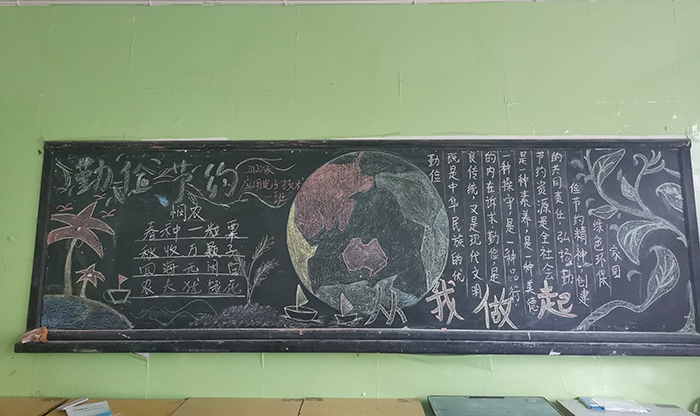 勤俭节约
2020级
应用电子技术
班
悯农
春种一粒粟
秋收万颗子
四海无闲田
农夫犹饿死
勤俭
既是中华民族的优
良传统，又是现代文明
的内在诉求勤俭，是
一种操守，是一种品行
是一种素养，是一种美德
节约资源是全社会
的共同责任 弘扬勤
俭节约精神 创建
绿色环保
家园
我做起